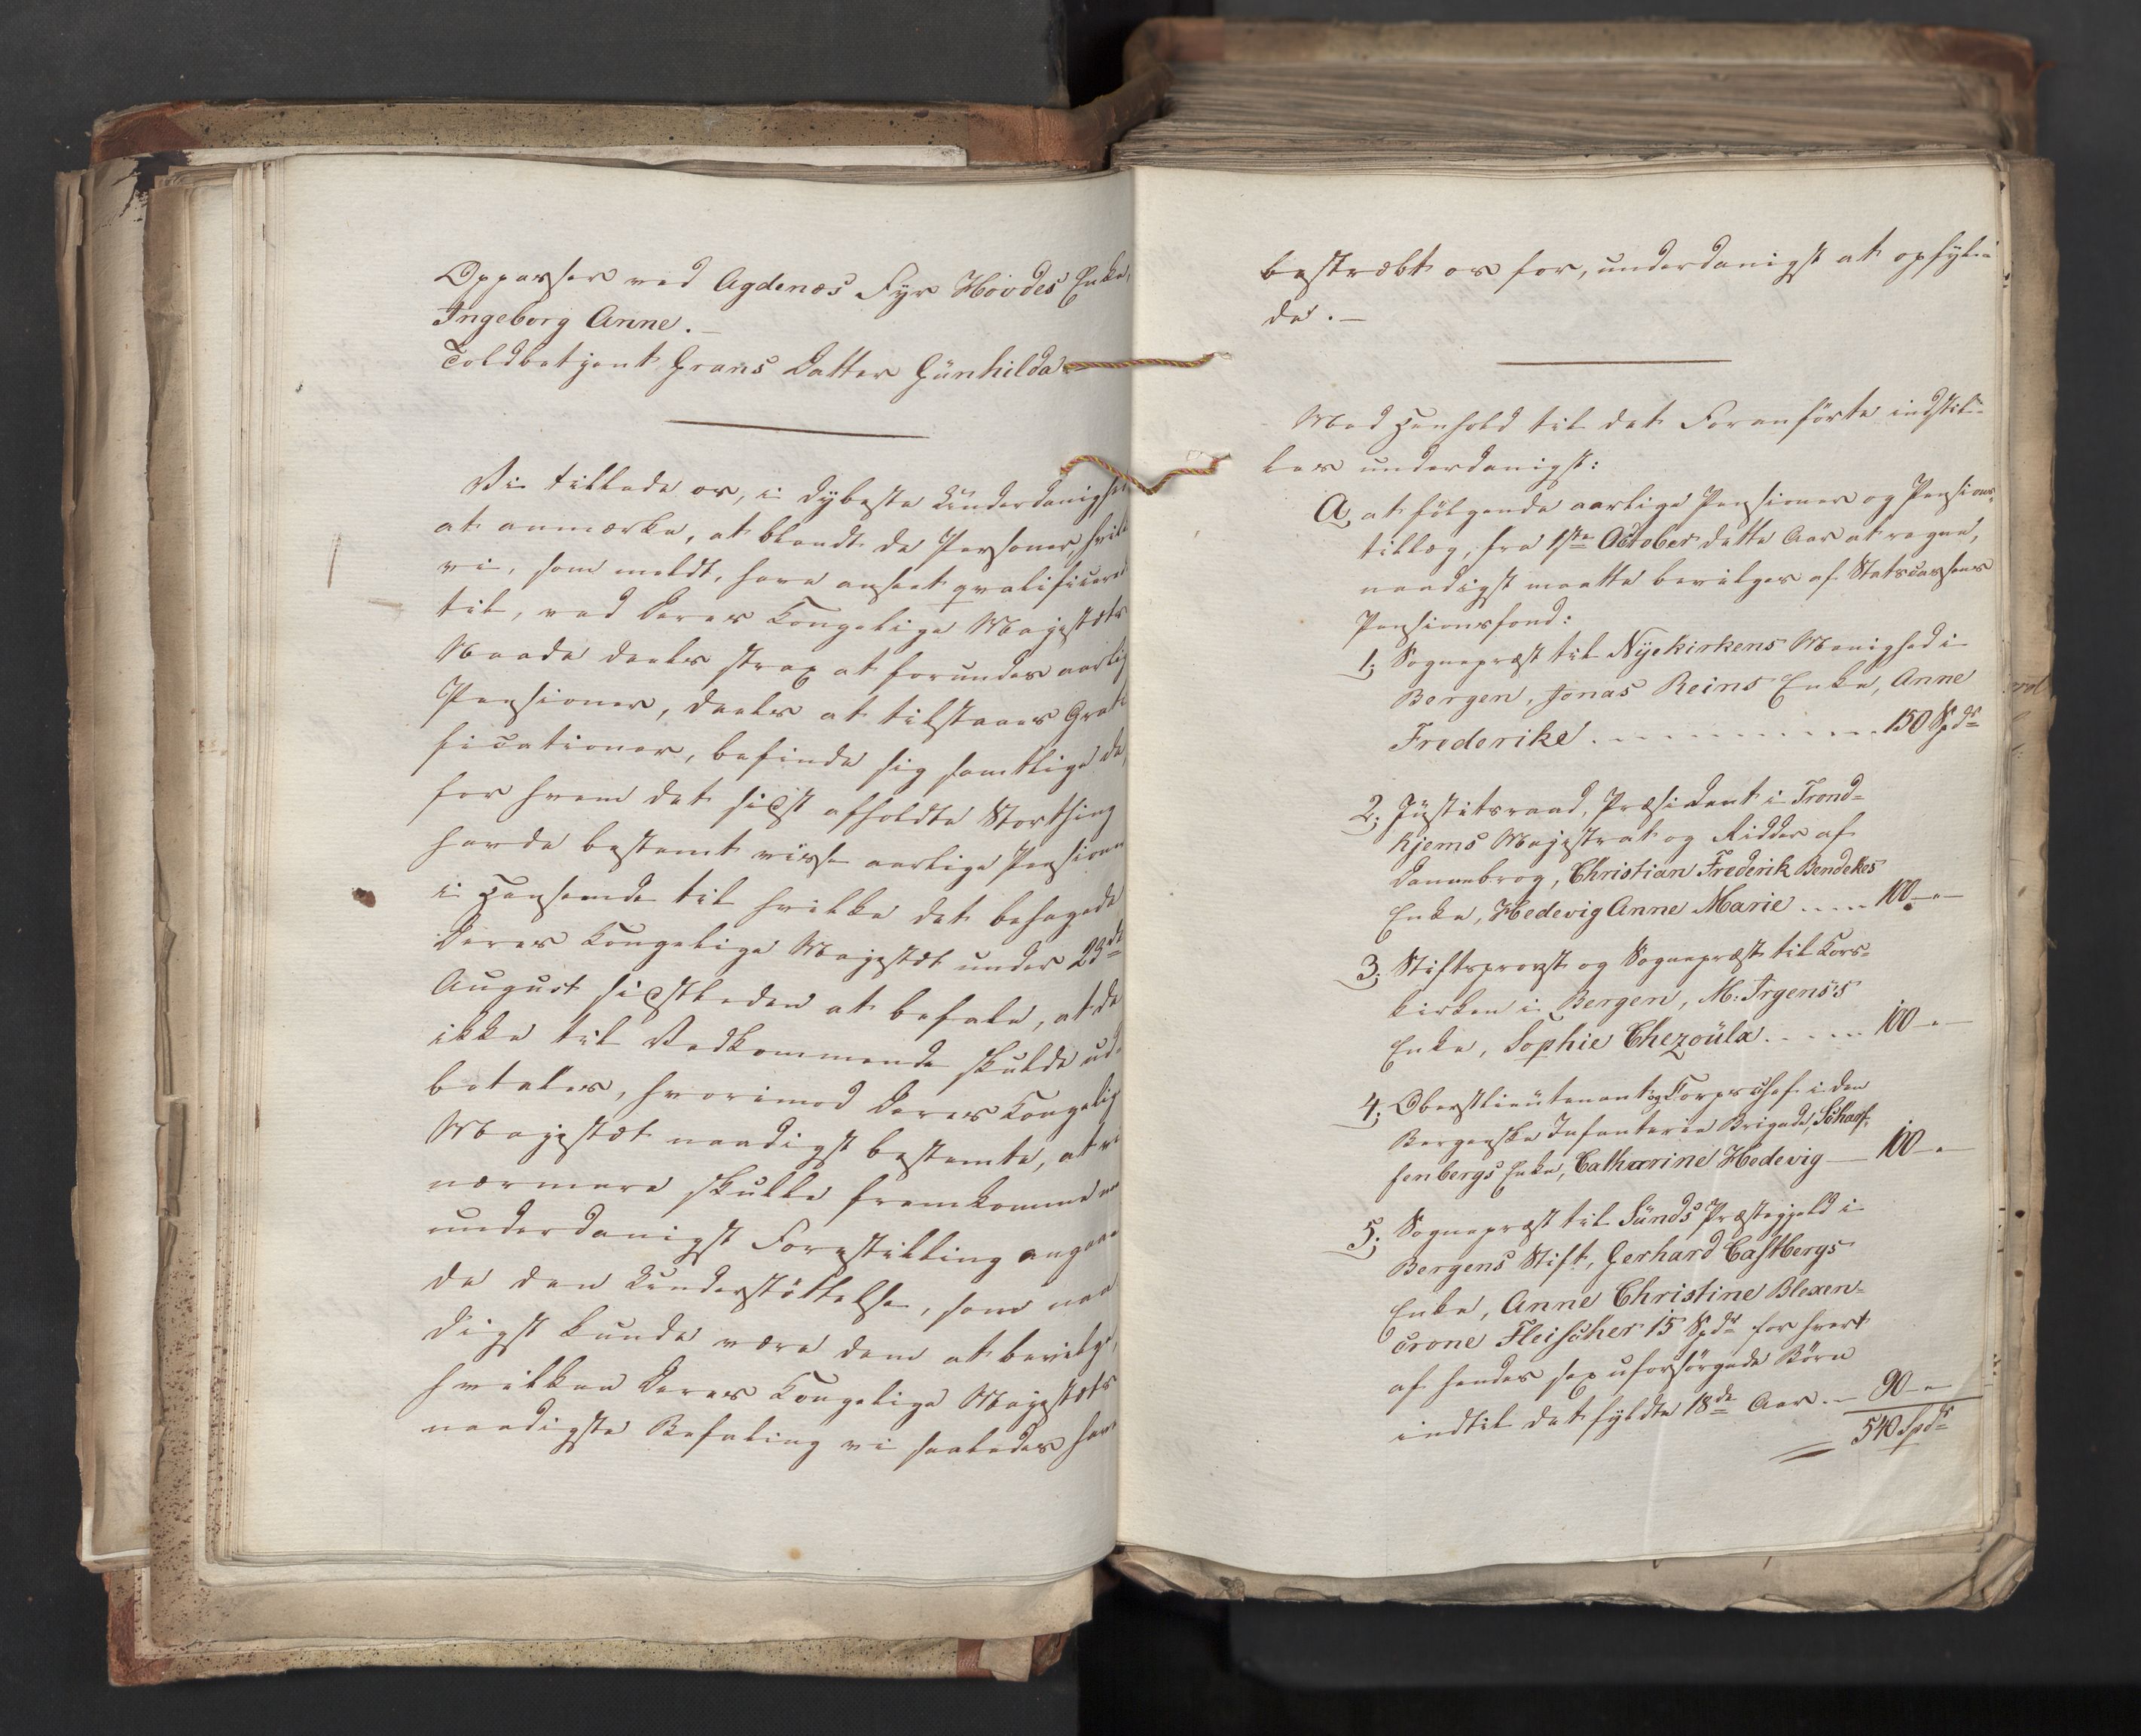 Oppasser ved Agdenæs Fyr Hövdes Enke,
Ingeborg Anne. —
Toldbetjent Grans Datter Günhilda.

Vi tillade os, i dybeste Underdanighed
at anmærke, at blandt de Personer, hvilke
vi, som meldt, have anseet qvalificerede
til, ved Deres Kongelige Majestæts
Naade deels strax at forundes aarlig
Pensioner, deels at tilstaaes Grati-
ficationer, befinde sig samtlige de,
for hvem det sidst afholdte Storthing
havde bestemt visse aarlige Pensioner
i Henseende til hvilke det behagede
Deres Kongelige Majestæt under 23de
August sidstleden at befale, at de
ikke til Vedkommende skulde ud-
betales, hvorimod Deres Kongelig
Majestæt naadigst bestemte, at vi
nærmere skulle fremkomme med
underdanigst Forestilling angaaen-
de den Understöttelse, som naa-
digst kunde være dem at bevilge,
hvilken Deres Kongelige Majestæts
naadigste Befaling vi saaledes have
bestræbt os for, underdanigst at opfyl-
de. —

Med Henhold til det Foranförte indstil-
les underdanigst:
A, at fölgende aarlige Pensioner og Pensions-
tillæg, fra 1ste October dette Aar at regne,
naadigst maatte bevilges af Statscassens
Pensionsfond:
1, Sognepræst til Nÿekirkens Menighed i
Bergen, Jonas Reins Enke, Anne
Frederike . . . . . . . . . . 150 Spdr
2, Justitsraad, Præsident i Trond-
hjems Magistrat og Ridder af
Dannebrog, Christian Frederik Bendekes
Enke, Hedevig Anne Marie . . . . . 100 - " -
3, Stiftsprovst og Sognepræst til Kors-
kirken i Bergen, M: Irgens's
Enke, Sophie Chezoüla . . . . . 100 - " -
4, Oberstlieutenant og Corpschef i den
Bergenske Infanterie Brigade, Scharf-
fenbergs Enke, Catharine Hedevig — 100 - " -
5, Sognepræst til Sünds Præstegjeld i
Bergens Stift, Gerhard Castbergs
Enke, Anne Christine Blexen-
crone Fleischer 15 Spdr for hvert
af hendes sex uforsörgede Börn
indtil det fyldte 18de Aar . — 90 - " -
540 Spdr